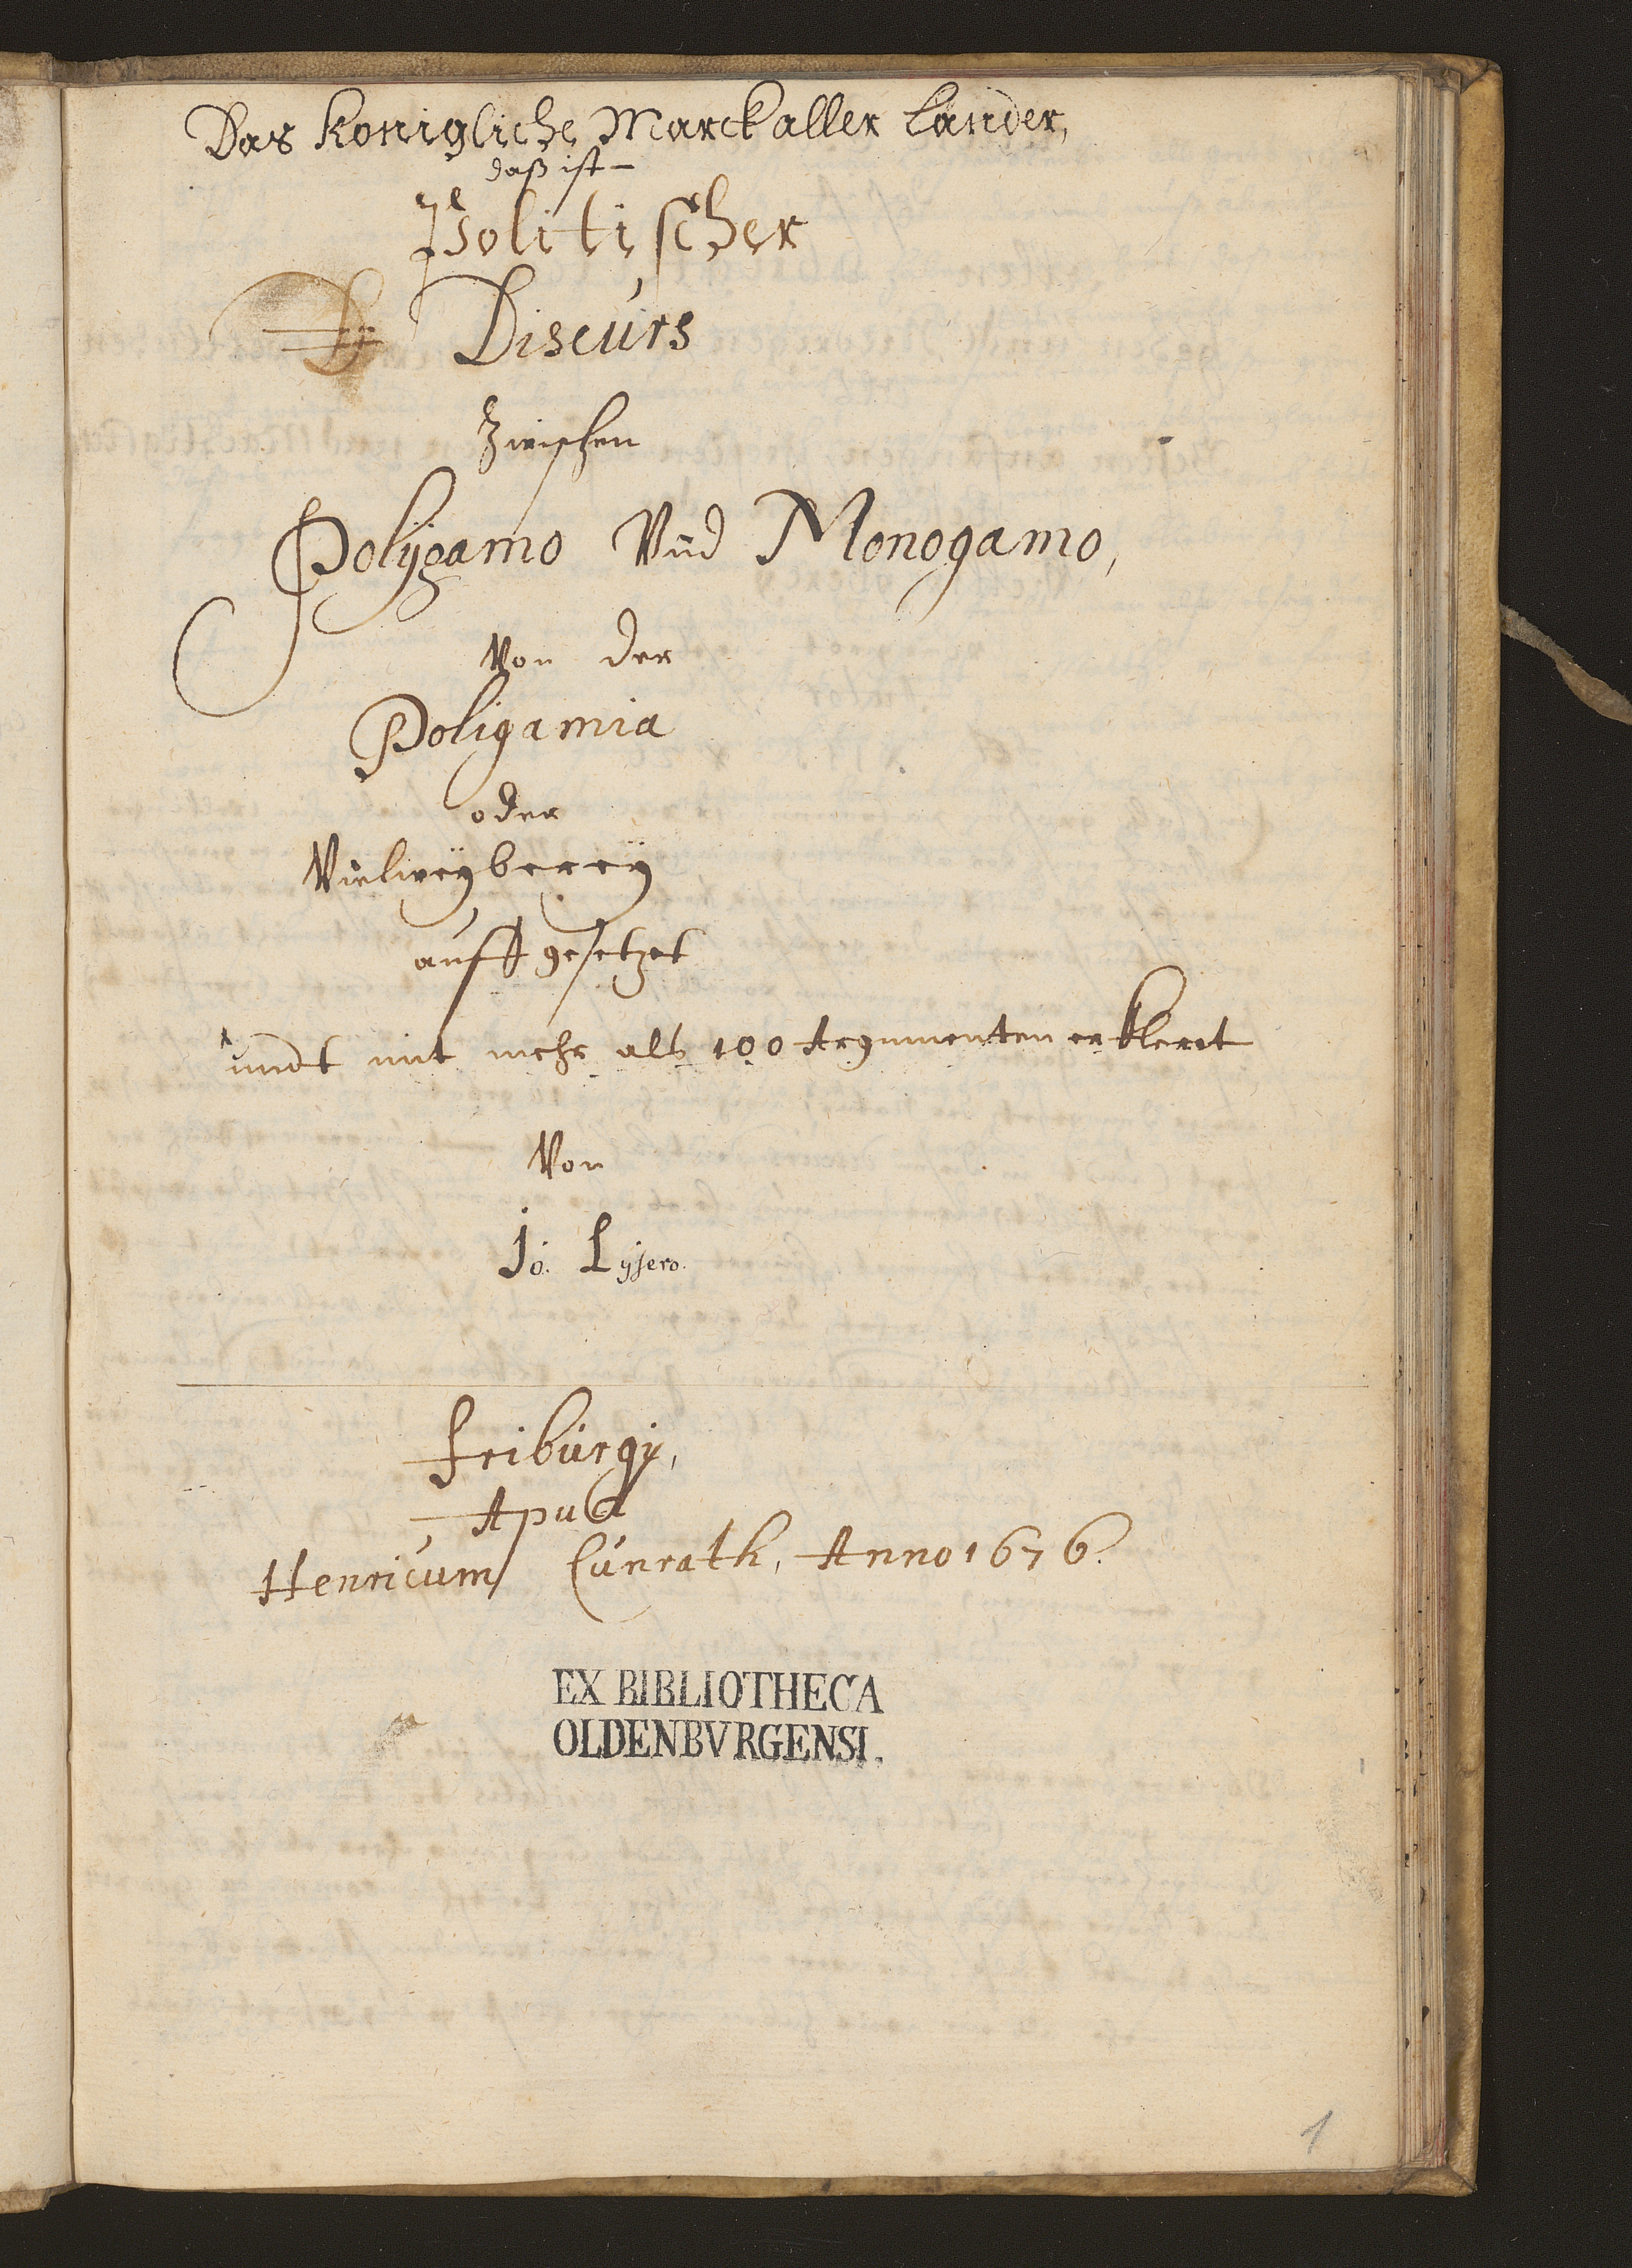 Das Konigliche Marck aller Länder,
daß ist
Politischer
Discurs
Zwischen
Polÿgamo Vnd Monogamo,
Von der
Poligamia
oder
Vielweÿbereÿ
auffgesetzet
undt mit mehr alß 100 Argumenten erkleret
Von
Jo. Lÿsero.
Fribùrgj,
Apud
Henricùm Cùnrath, Anno 1676.
EX BIBLIOTHECA
OLDENBVRGENSI.
1